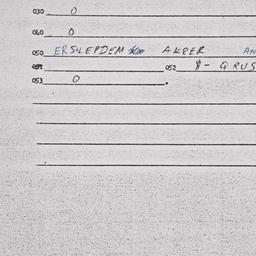 030 0
040 0
050 ERSILEPDEM AKBER AN
052 $- GRUS
053 0